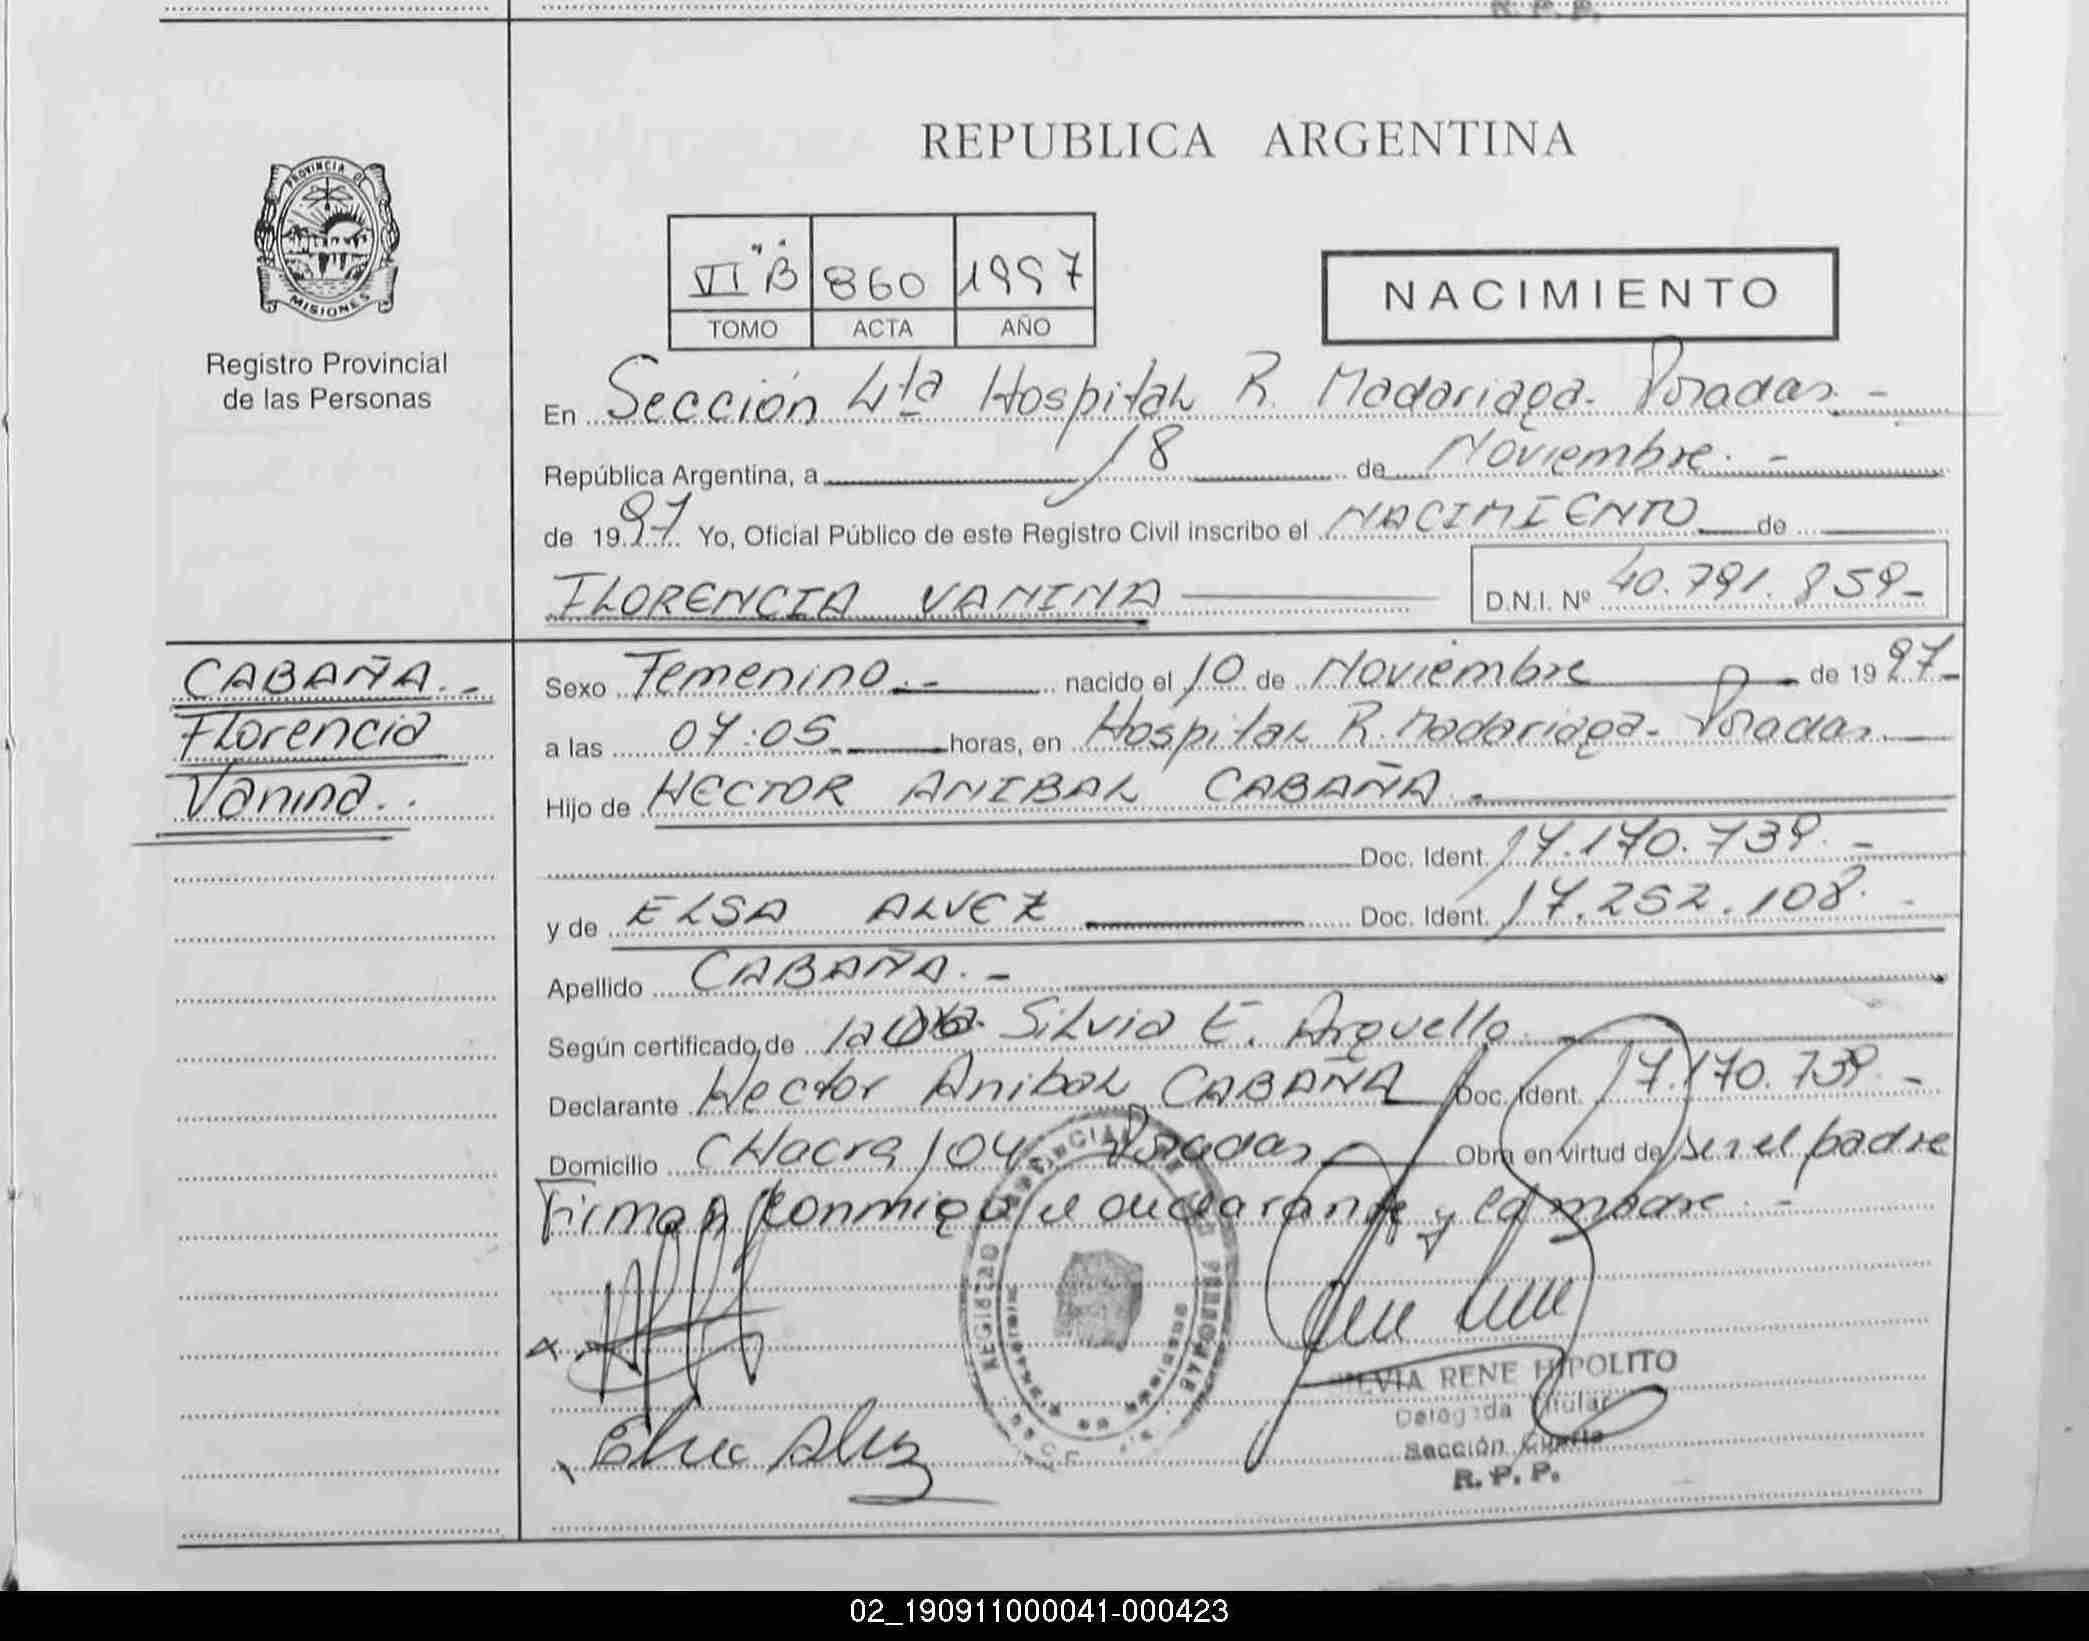 R. P. P.
REPUBLICA ARGENTINA
PROVINCIA DE
MISIONES
Registro Provincial
de las Personas
VI "B" 860 1997
TOMO ACTA AÑO
NACIMIENTO
En Sección 4ta Hospital R. Madariaga - Posadas. -
República Argentina, a 18 de Noviembre. -
de 1997 Yo, Oficial Público de este Registro Civil inscribo el NACIMIENTO de
FLORENCIA VANINA
D.N.I. Nº 40.791.859-
CABAÑA.-
Florencia
Vanina..
Sexo Femenino.- nacido el 10 de Noviembre de 1997-
a las 07:05 horas, en Hospital R. Madariaga - Posadas.
Hijo de HECTOR ANIBAL CABAÑA.
Doc. Ident. 17.170.739.-
y de ELSA ALVEZ Doc. Ident. 17.252.108.-
Apellido CABAÑA.-
Según certificado de la Silvia E. Arguello.
Declarante Hector Anibal CABAÑA Doc. Ident. 17.170.739.-
Domicilio CHacra 104 Posadas Obra en virtud de ser el padre
Firman conmigo el declarante y la madre.-
REGISTRO PROVINCIAL DE LAS PERSONAS
SILVIA RENE HIPOLITO
Delegada Titular
Sección Cuarta
R. P. P.
02_190911000041-000423